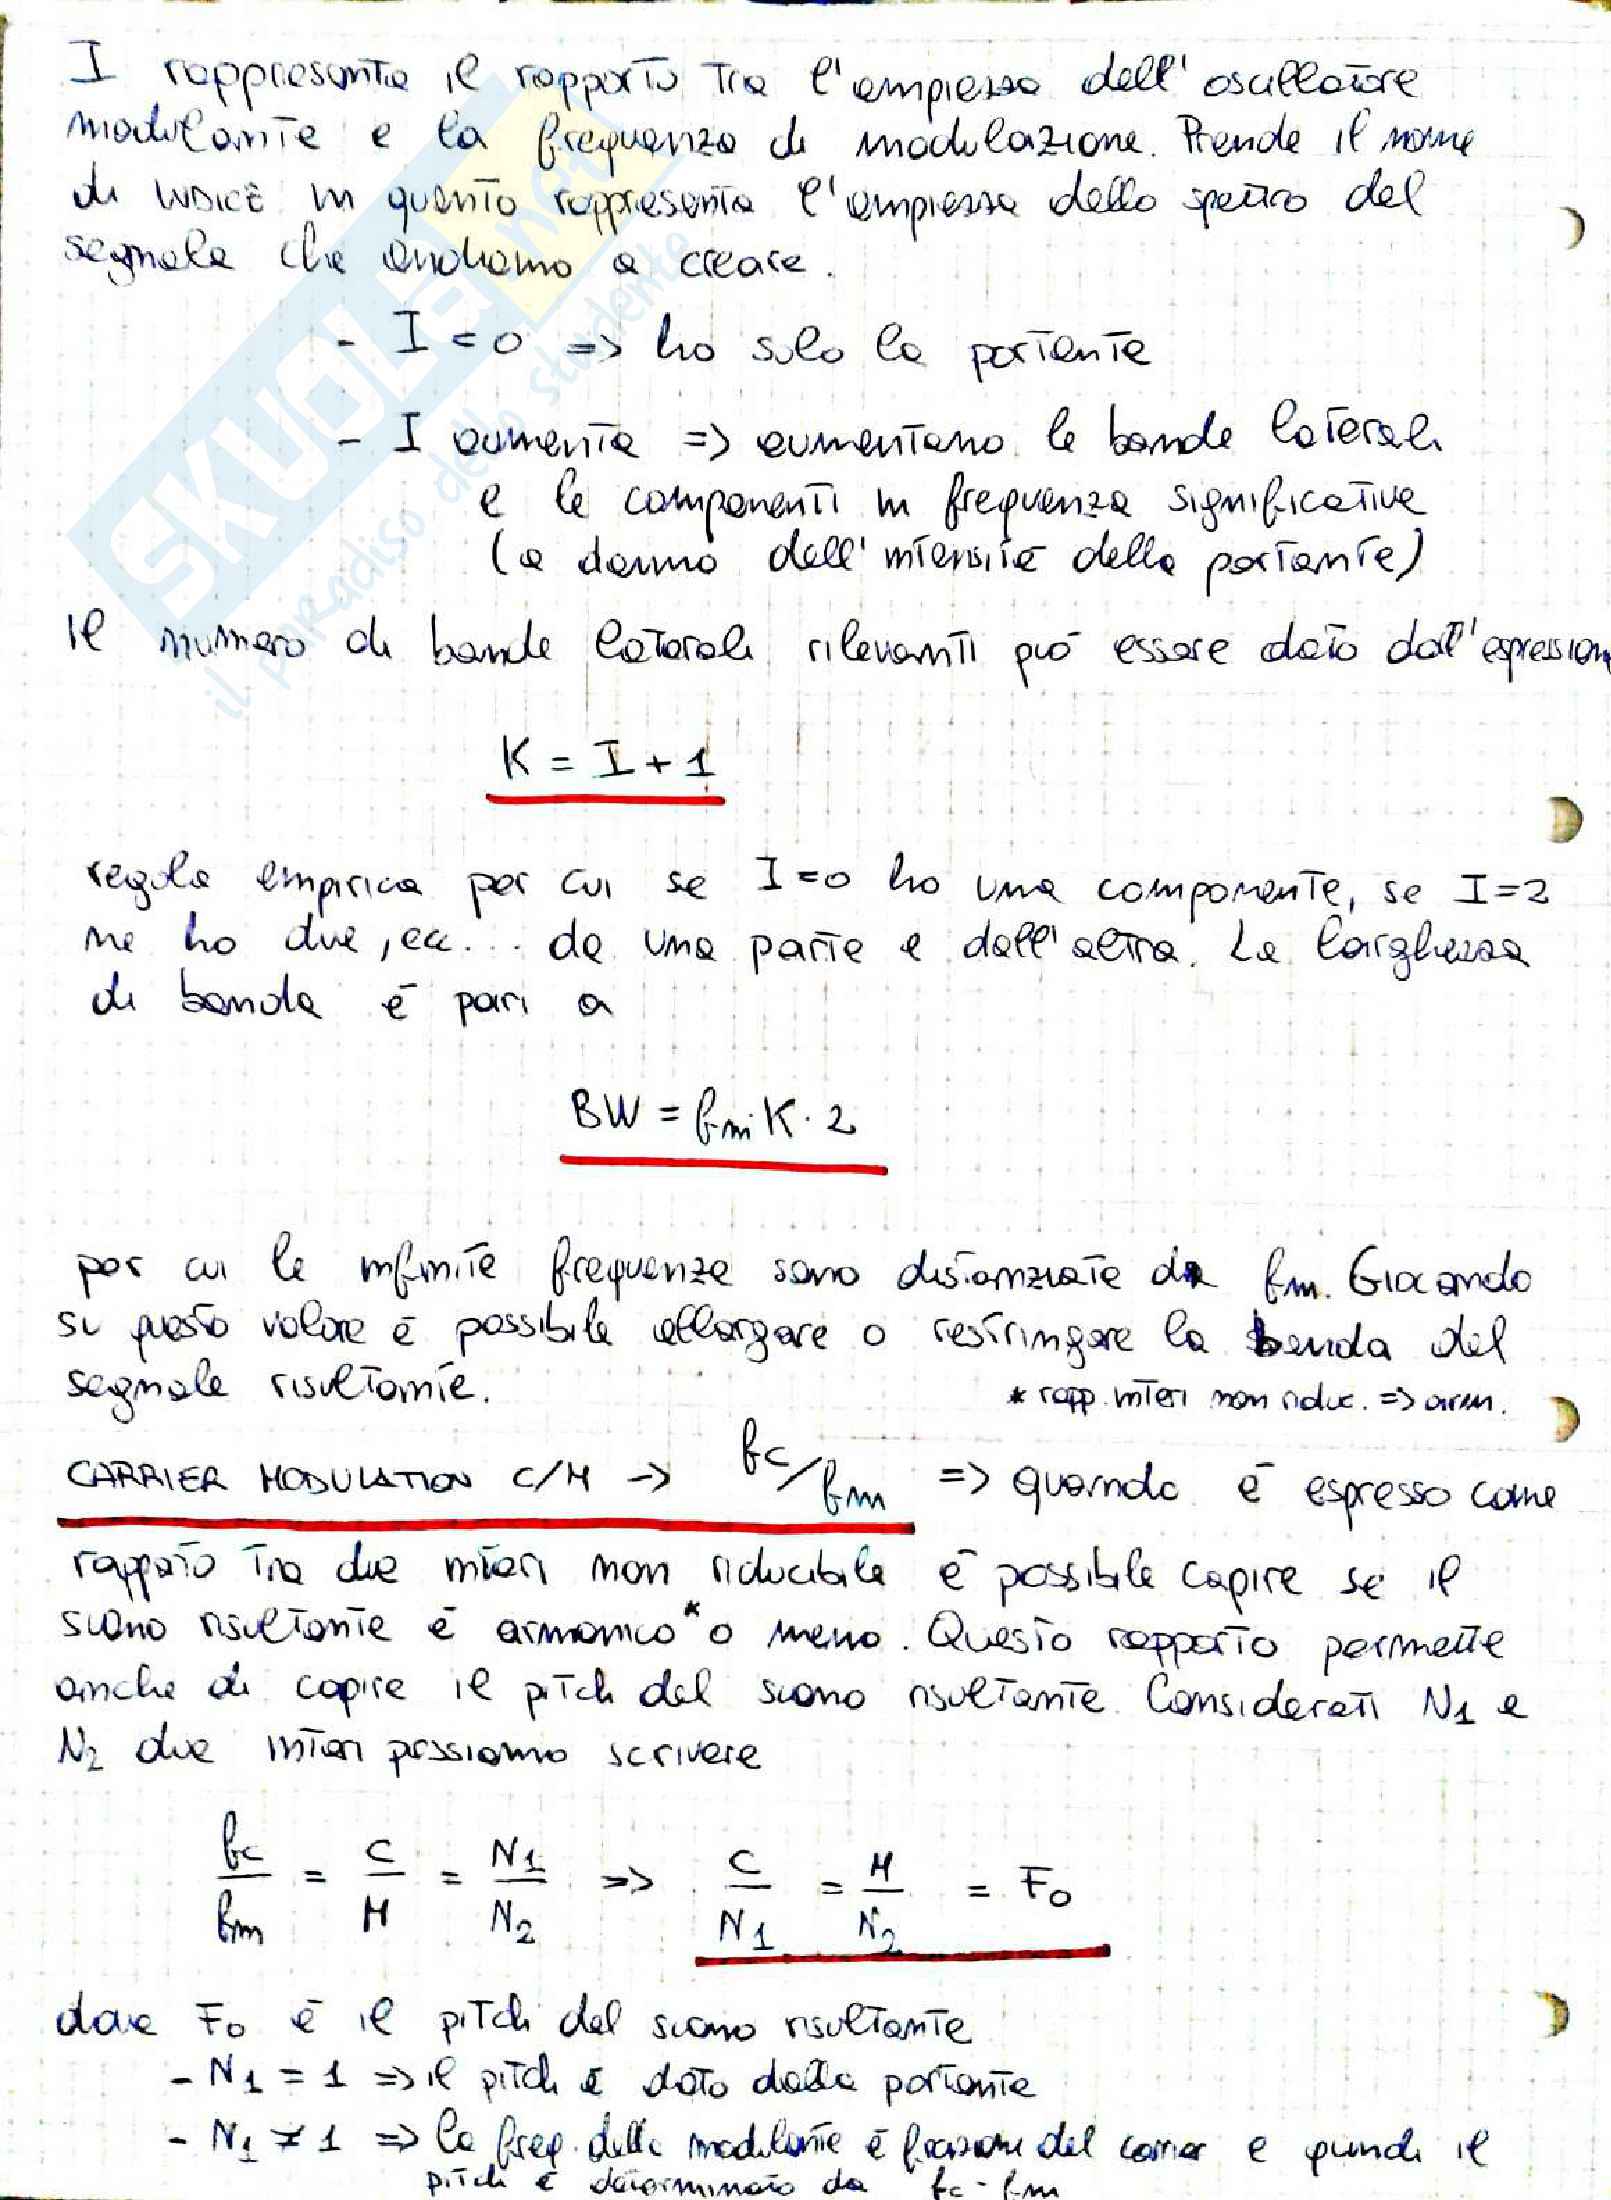 I rappresenta il rapporto tra l'ampiezza dell'oscillatore
modulante e la frequenza di modulazione. Prende il nome
di INDICE in quanto rappresenta l'ampiezza dello spettro del
segnale che andiamo a creare.
- I = 0 => ho solo la portante
- I aumenta => aumentano le bande laterali
e le componenti in frequenza significative
(a danno dell'intensità della portante)
il numero di bande laterali rilevanti può essere dato dall'espression
K = I + 1
regola empirica per cui se I=0 ho una componente, se I=2
ne ho due, ecc... da una parte e dall'altra. La larghezza
di banda è pari a
BW = fm·K·2
per cui le infinite frequenze sono distanziate da fm. Giocando
su questo valore è possibile allargare o restringere la banda del
segnale risultante.
* rapp. interi non riduc. => arm.
CARRIER MODULATION C/M -> fc/fm => quando è espresso come
rapporto tra due interi non riducibile è possibile capire se il
suono risultante è armonico* o meno. Questo rapporto permette
anche di capire il pitch del suono risultante. Considerati N1 e
N2 due interi possiamo scrivere
fc/fm = C/M = N1/N2 => C/N1 = M/N2 = F0
dove F0 è il pitch del suono risultante
- N1 = 1 => il pitch è dato dalla portante
- N1 ≠ 1 => la freq. della modulante è frazione del carrier e quindi il
pitch è determinato da fc - fm
SKUOLA.net
il paradiso dello studente